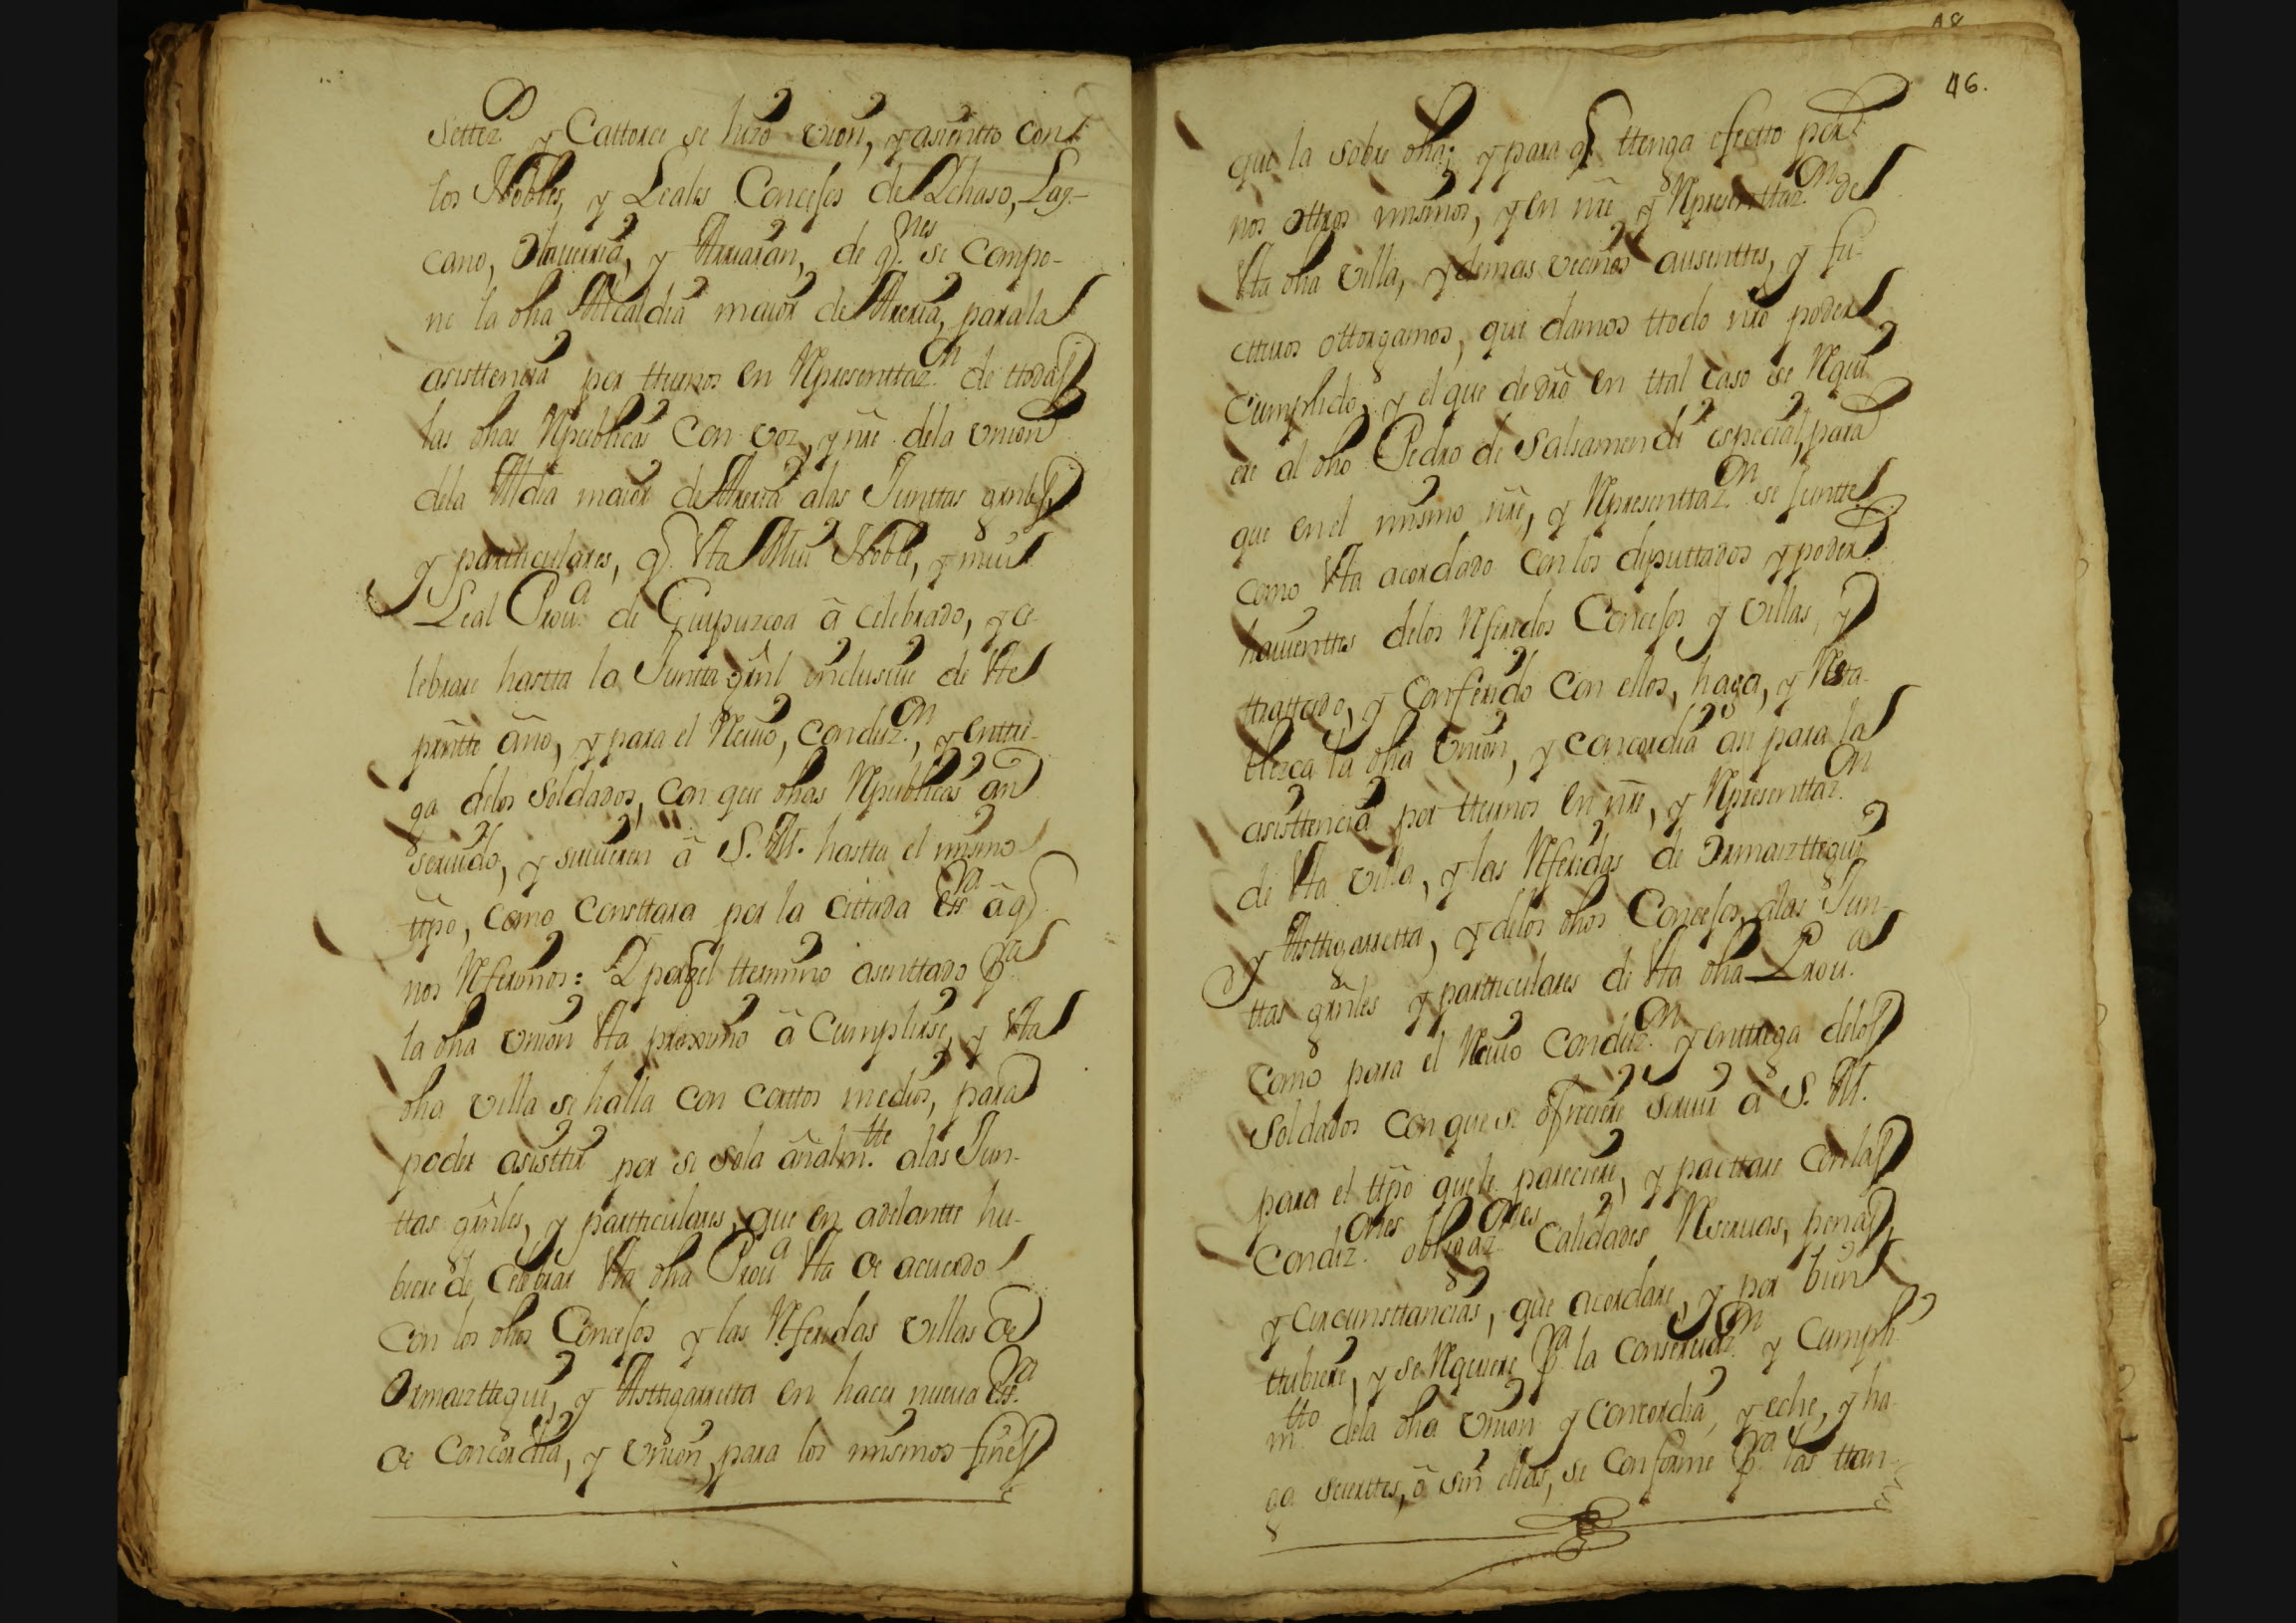 Settez.^s y Cattorce se hizo vnion, y asientto con
los Nobles, y Leales Concejos de Ychaso, Laz-
cano, Olauerria, y Arriaran, de q.^nes se compo-
ne la dha Alcaldia maior de Areria, para la
asisttencia por tturnos en Representtaz.^on de ttodas
las dhas Republicas con voz, y nre dela vnion
dela Aldia maior de Areria alas Junttas grnles,
y partticulares, q. estta Mui Noble, y mui
Leal Prou.^a de Guipuzcoa â celebrado, y ce-
lebrare hastta la Juntta grnl inclusiue de estte
presntte año, y para el Reciuo, conduz.^on, y enttre-
ga delos Soldados, con que dhas Republicas an
seruido, y siruieren â S. M. hastta el mismo
ttpo, como consttara por la cittada ess^ra â q
nos Referimos: Y porq el ttermino asenttado p^a
la dha vnion estta proximo â Cumplirse, y estta
dha villa se halla con corttos medios, para
poder asisttir por si sola añalm.^tte alas Jun-
ttas grnles, y partticulares, que en adelantte hu-
biere de Celebrar estta dha Prou^a estta de acuerdo
con los dhos Concejos y las Referidas villas de
Ormaiztegui, y Asttigarretta en hacer nueua ess.^ra
de Concordia, y vnion, para los mismos fines
46.
que la sobre dha; y para q ttenga efectto por
nos ottros mismos, y en nre y Representtaz.^on de
estta dha villa, y demas vecinos ausenttes, y fu-
ctturos ottorgamos, que damos ttodo nro poder
Cumplido, y el que de dro en ttal caso se Requi
ere al dho Pedro de Salsamendi especial, para
que en el mismo nre, y Representtaz.^on se juntte
como estta acordado con los diputtados y poder
hauienttes delos Referidos Concejos y villas, y
ttrattado, y Conferido con ellos, haga, y Resta-
blezca la dha vnion, y concordia asi para la
asisttencia por tturnos en nre, y Representtaz.^on
de estta villa, y las Referidas de Ormaizttegui
y Asttigarretta, y delos dhos Concejos, alas Jun-
ttas grnles y partticulares de estta dha Prou.^a
como para el Reciuo Conduz.^on y enttrega delos
Soldados con que se ofreciere seruir â S. M.
para el ttpo que le pareciere, y pacttare con las
Condiz.^ones obligaz.^ones Calidades Reseruas, penas,
y Circunsttancias, que acordare, y por bien
ttubiere, y se Requiere p^a la Conseruaz.^on y Cumpli
m^tto dela dha vnion y Concordia, y eche, y ha
ga suerttes, ô sin ellas, se Conforme p^a las ttan-